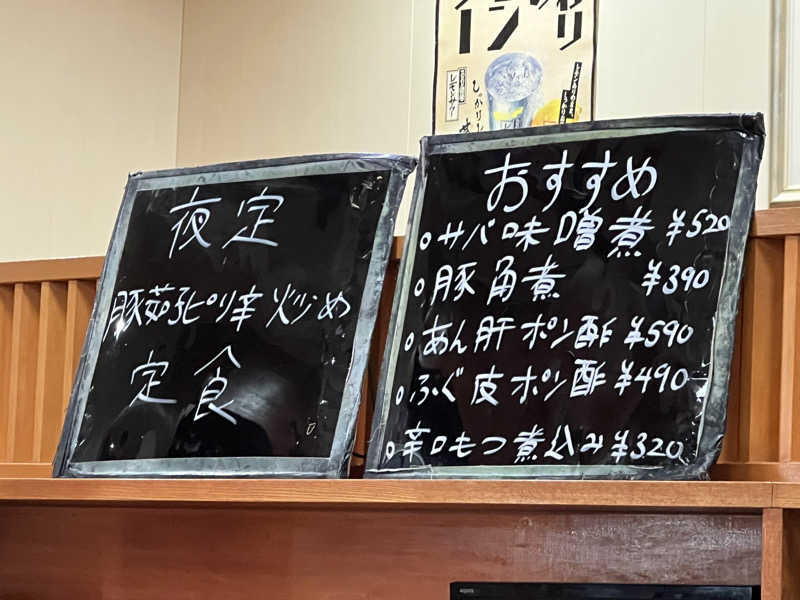 夜定
豚茄子ピリ辛炒め
定食
おすすめ
。サバ味噌煮 ¥520
。豚角煮 ¥390
。あん肝ポン酢 ¥590
。ふぐ皮ポン酢 ¥490
。辛口もつ煮込み ¥320
レモンサワー
AQUOS